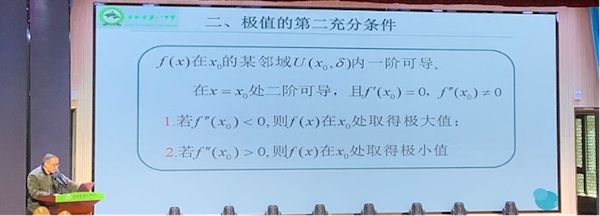 二、极值的第二充分条件
f(x)在x₀的某邻域U(x₀,δ)内一阶可导,
在x = x₀处二阶可导，且f′(x₀) = 0, f″(x₀) ≠ 0
1.若f″(x₀) < 0,则f(x)在x₀处取得极大值；
2.若f″(x₀) > 0,则f(x)在x₀处取得极小值